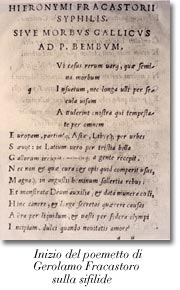 HIERONYMI FRACASTORII
SYPHILIS.
SIVE MORBVS GALLICVS
AD P. BEMBVM.
Vi casus rerum varij, quæ semina
morbum
Insuetum, nec longa ulli per sæcula
uisum
Attulerint nostra qui tempestate
per omnem
Europam, partimq; Asiæ, Libyæq; per urbes
Sæuijt: in Latium uero per tristia bella
Gallorum irrupit, a gente recepit.
Nec non et quæ cura, et opis quid comperit usus,
Magnaq; in angustis hominum sollertia rebus:
Et monstrata Deum auxilia, et data munera coeli,
Hinc canere, et longe secretas quærere causas
Aera per liquidum, et uasti per sidera olympi
Incipiam, dulci quando nouitatis amore
Inizio del poemetto di
Gerolamo Fracastoro
sulla sifilide